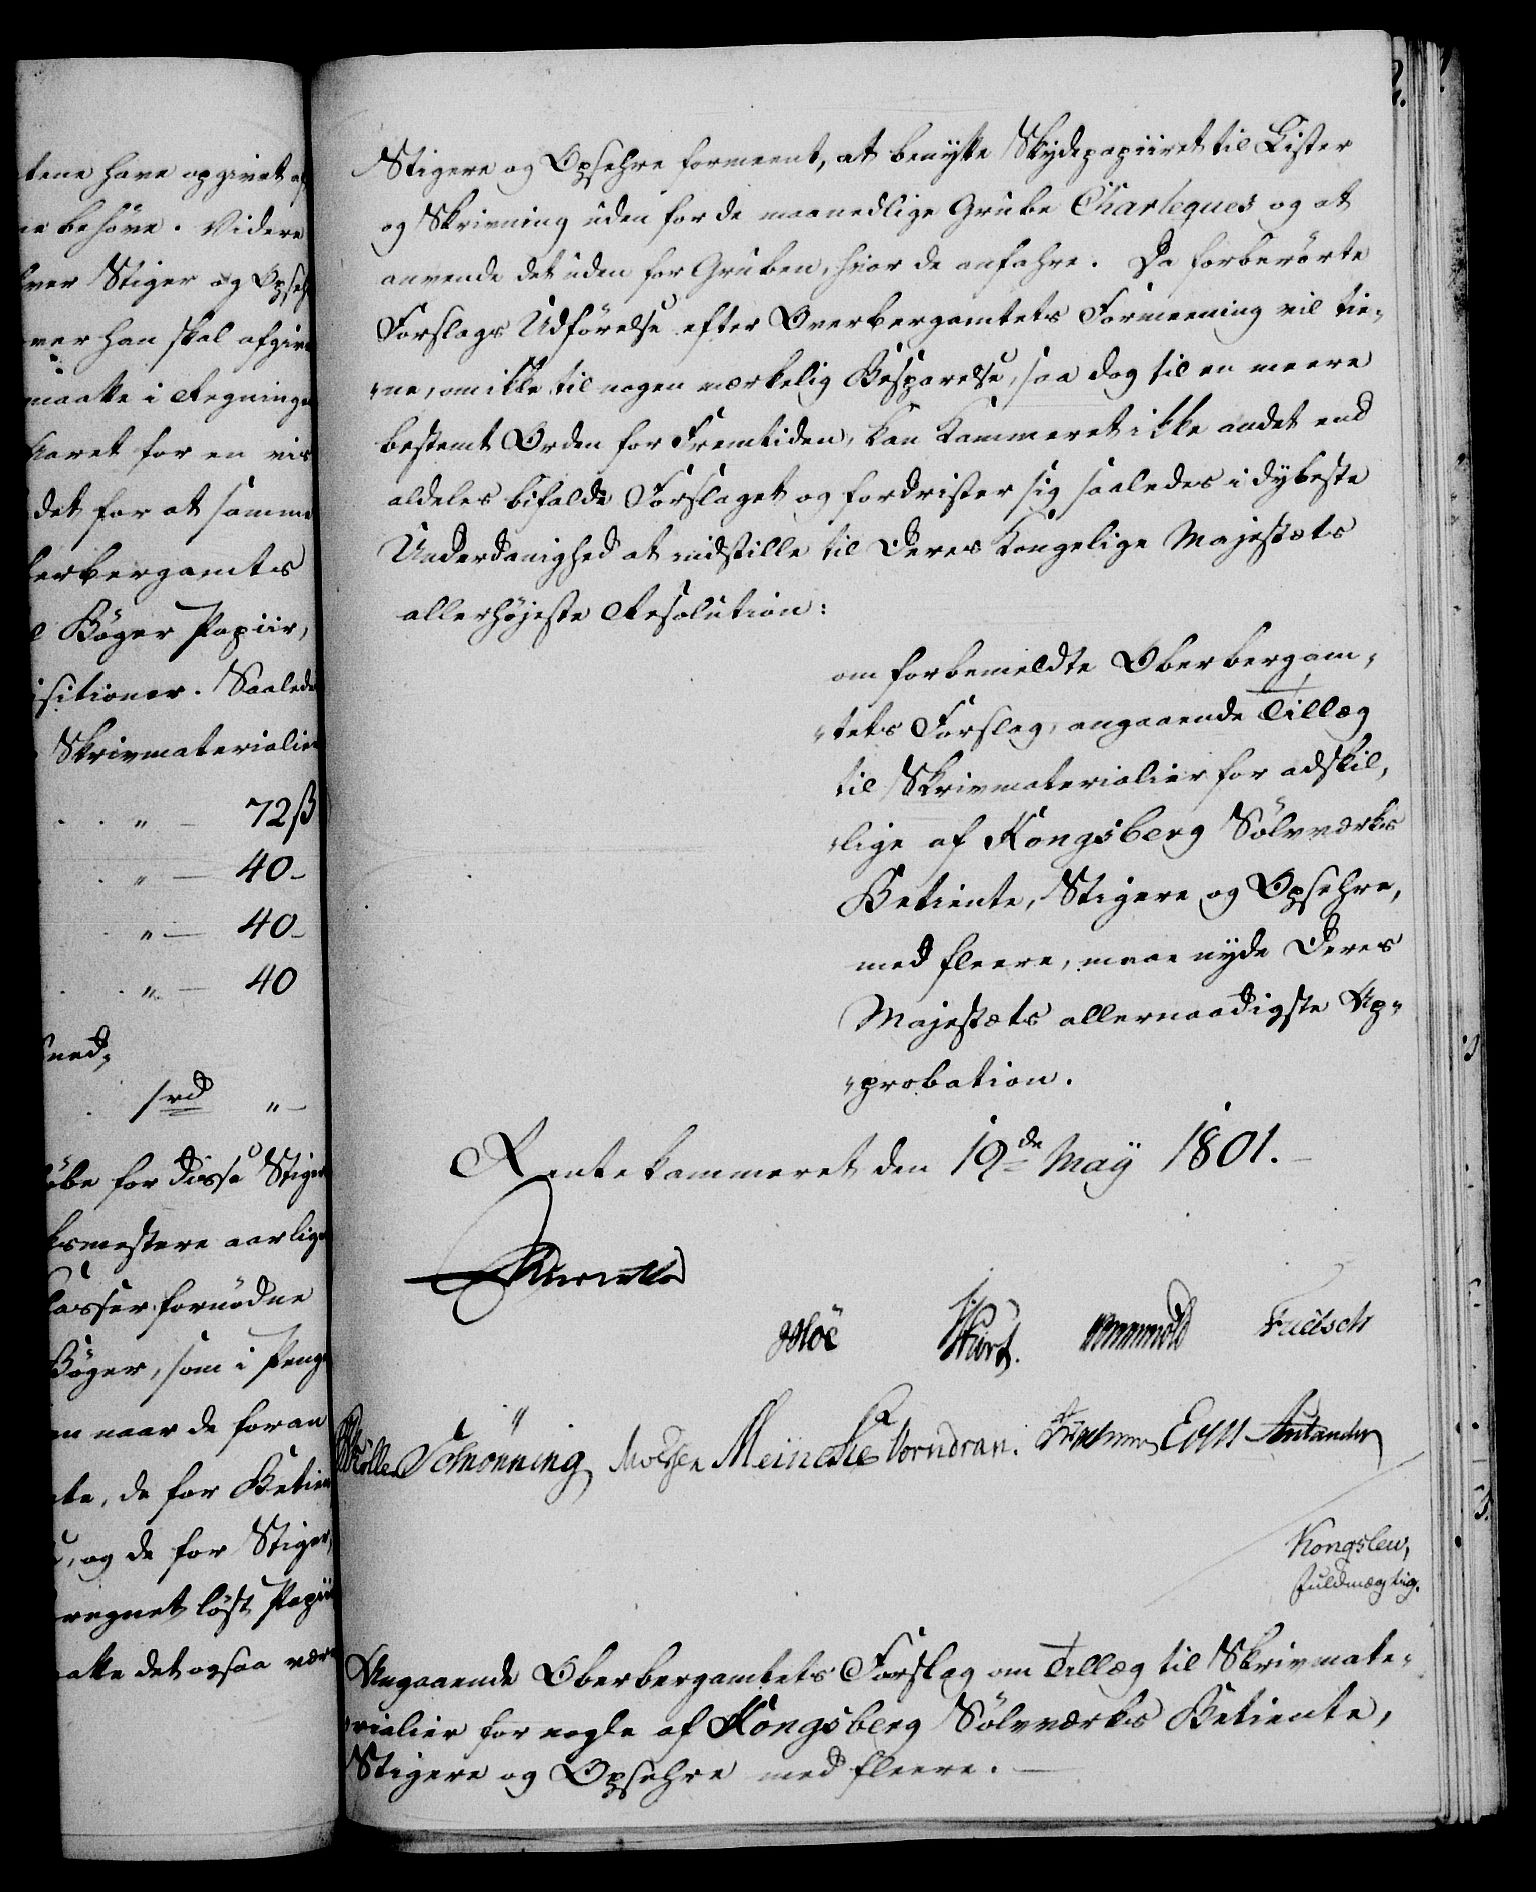 tene have opgivet at
ne behöve. Videre
hver Stiger og Opseh
ver han skal afgive
maatte i Regninge
Aaret for en vis
det for at samme
berbergamts
Böger Papiir,
isitioner. Saalede
Skrivmaterialier
" - 72 ß
" - 40 -
" - 40 -
" - 40
1 rd " -
for disse Stiger
smestere aarlige
Casser fornödne
Böger, som i Penge
en naar de foran
te, de for Betien
, og de for Stiger,
regnet löst Papiir
atte det ogsaa være
Stigere og Opsehre formeent, at benytte Skydepapiiret til Lister
og Skrivning uden for de maanedlige Grube Charteques og at
anvende det uden for Gruben, hvor de anfahre. Da forberörte
Forslags Udförelse efter Overbergamtets Formeening vil tie-
"ne, om ikke til nogen mærkelig Besparelse, saa dog til en meere
bestemt Orden for Fremtiden, kan Kammeret ikke andet end
aldeles bifalde Forslaget og fordrister sig saaledes i dybeste
Underdanighed at indstille til Deres Kongelige Majestæts
allerhöjeste Resolution:
om forbemeldte Oberbergam-
"tets Forslag, angaaende Tillæg
til Skrivmaterialier for adskil-
"lige af Kongsberg Sölvværks
Betiente, Stigere og Opsehre,
med fleere, maae nyde Deres
Majestæts allernaadigste Ap-
"probation.
Rentekammeret den 19de Maÿ 1801.
Reventlow
Moe Wurt. Fridsch
Möller Schönning Meincke Vorndran.
Kongslew,
Fuldmægtig.
Angaaende Oberbergamtets Forslag om Tillæg til Skrivmate-
"rialier for nogle af Kongsberg Sölvværks Betiente,
Stigere og Opsehre med fleere. -